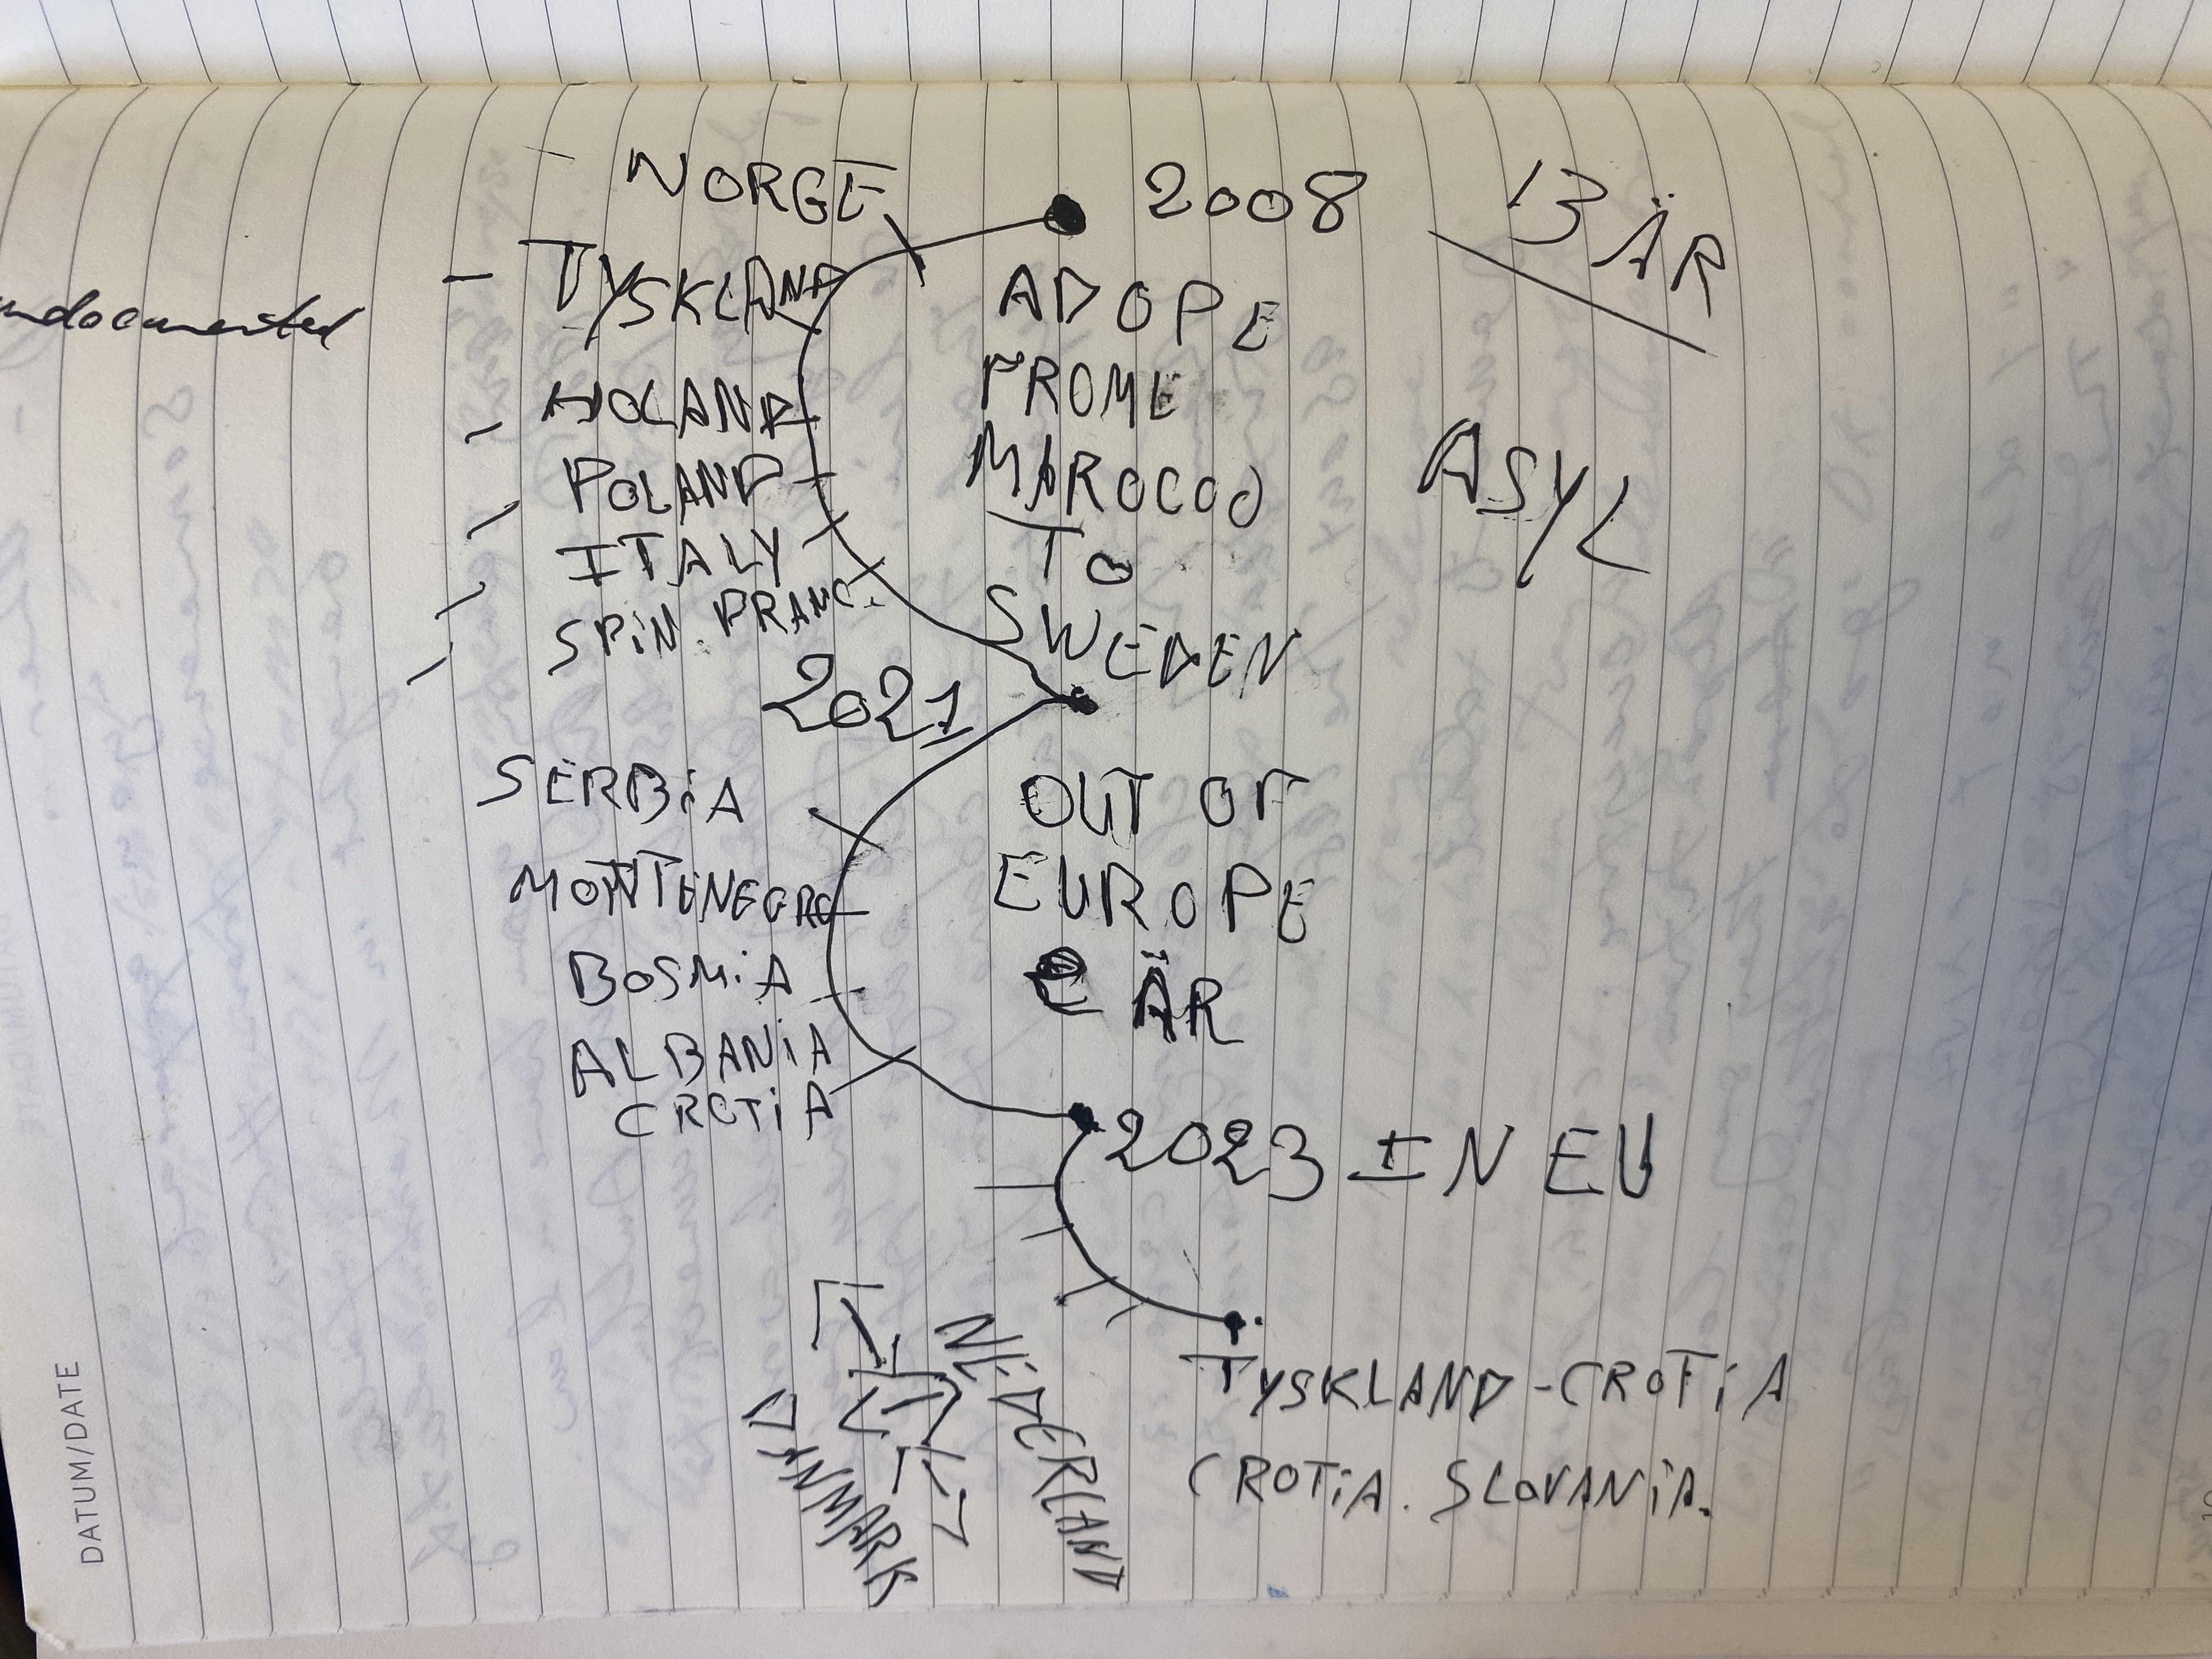 NORGE 2008 13 ÅR
TYSKLAND ADOPE
undocumented
HOLAND FROME
ASYL
POLAND MAROCOO
ITALY TO
SPiN. FRANC. SWEDEN
2021
SERBiA OUT OF
MONTENEGRO EUROPE
BOSMiA ÄR
ALBANiA
CROTiA
2023 IN EU
NEDERLAND
DANMARK
TYSKLAND - CROTiA
CROTiA. SLOVANiA.
DATUM/DATE